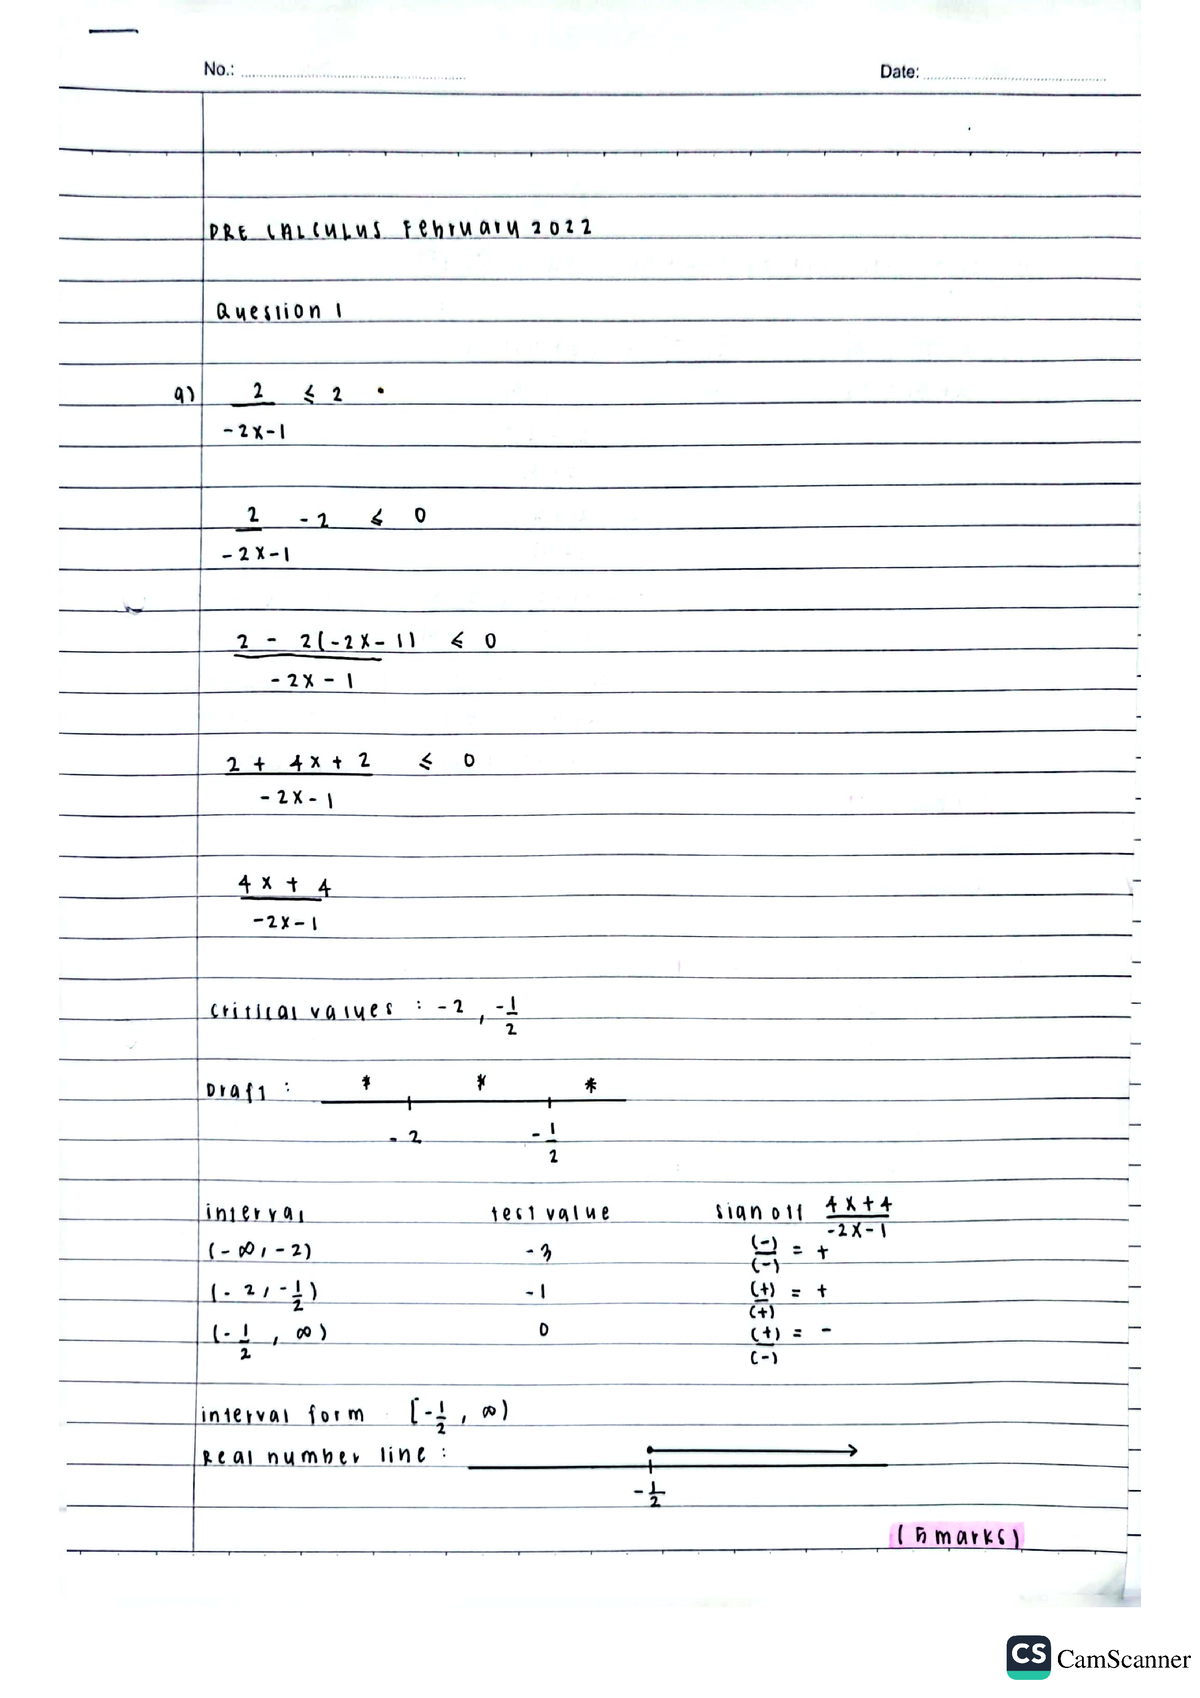 No.: Date:
PRE CALCULUS February 2022
Question 1
a) 2/(-2x-1) ≤ 2
2/(-2x-1) - 2 ≤ 0
(2 - 2(-2x-1))/(-2x-1) ≤ 0
(2 + 4x + 2)/(-2x-1) ≤ 0
(4x + 4)/(-2x-1)
critical values : -2 , -1/2
Draft : * * *
-2 -1/2
interval test value sign off (4x+4)/(-2x-1)
(-∞, -2) -3 (-)/(-) = +
(-2, -1/2) -1 (+)/(+) = +
(-1/2, ∞) 0 (+)/(-) = -
interval form [-1/2, ∞)
Real number line :
-1/2
(5 marks)
CS CamScanner